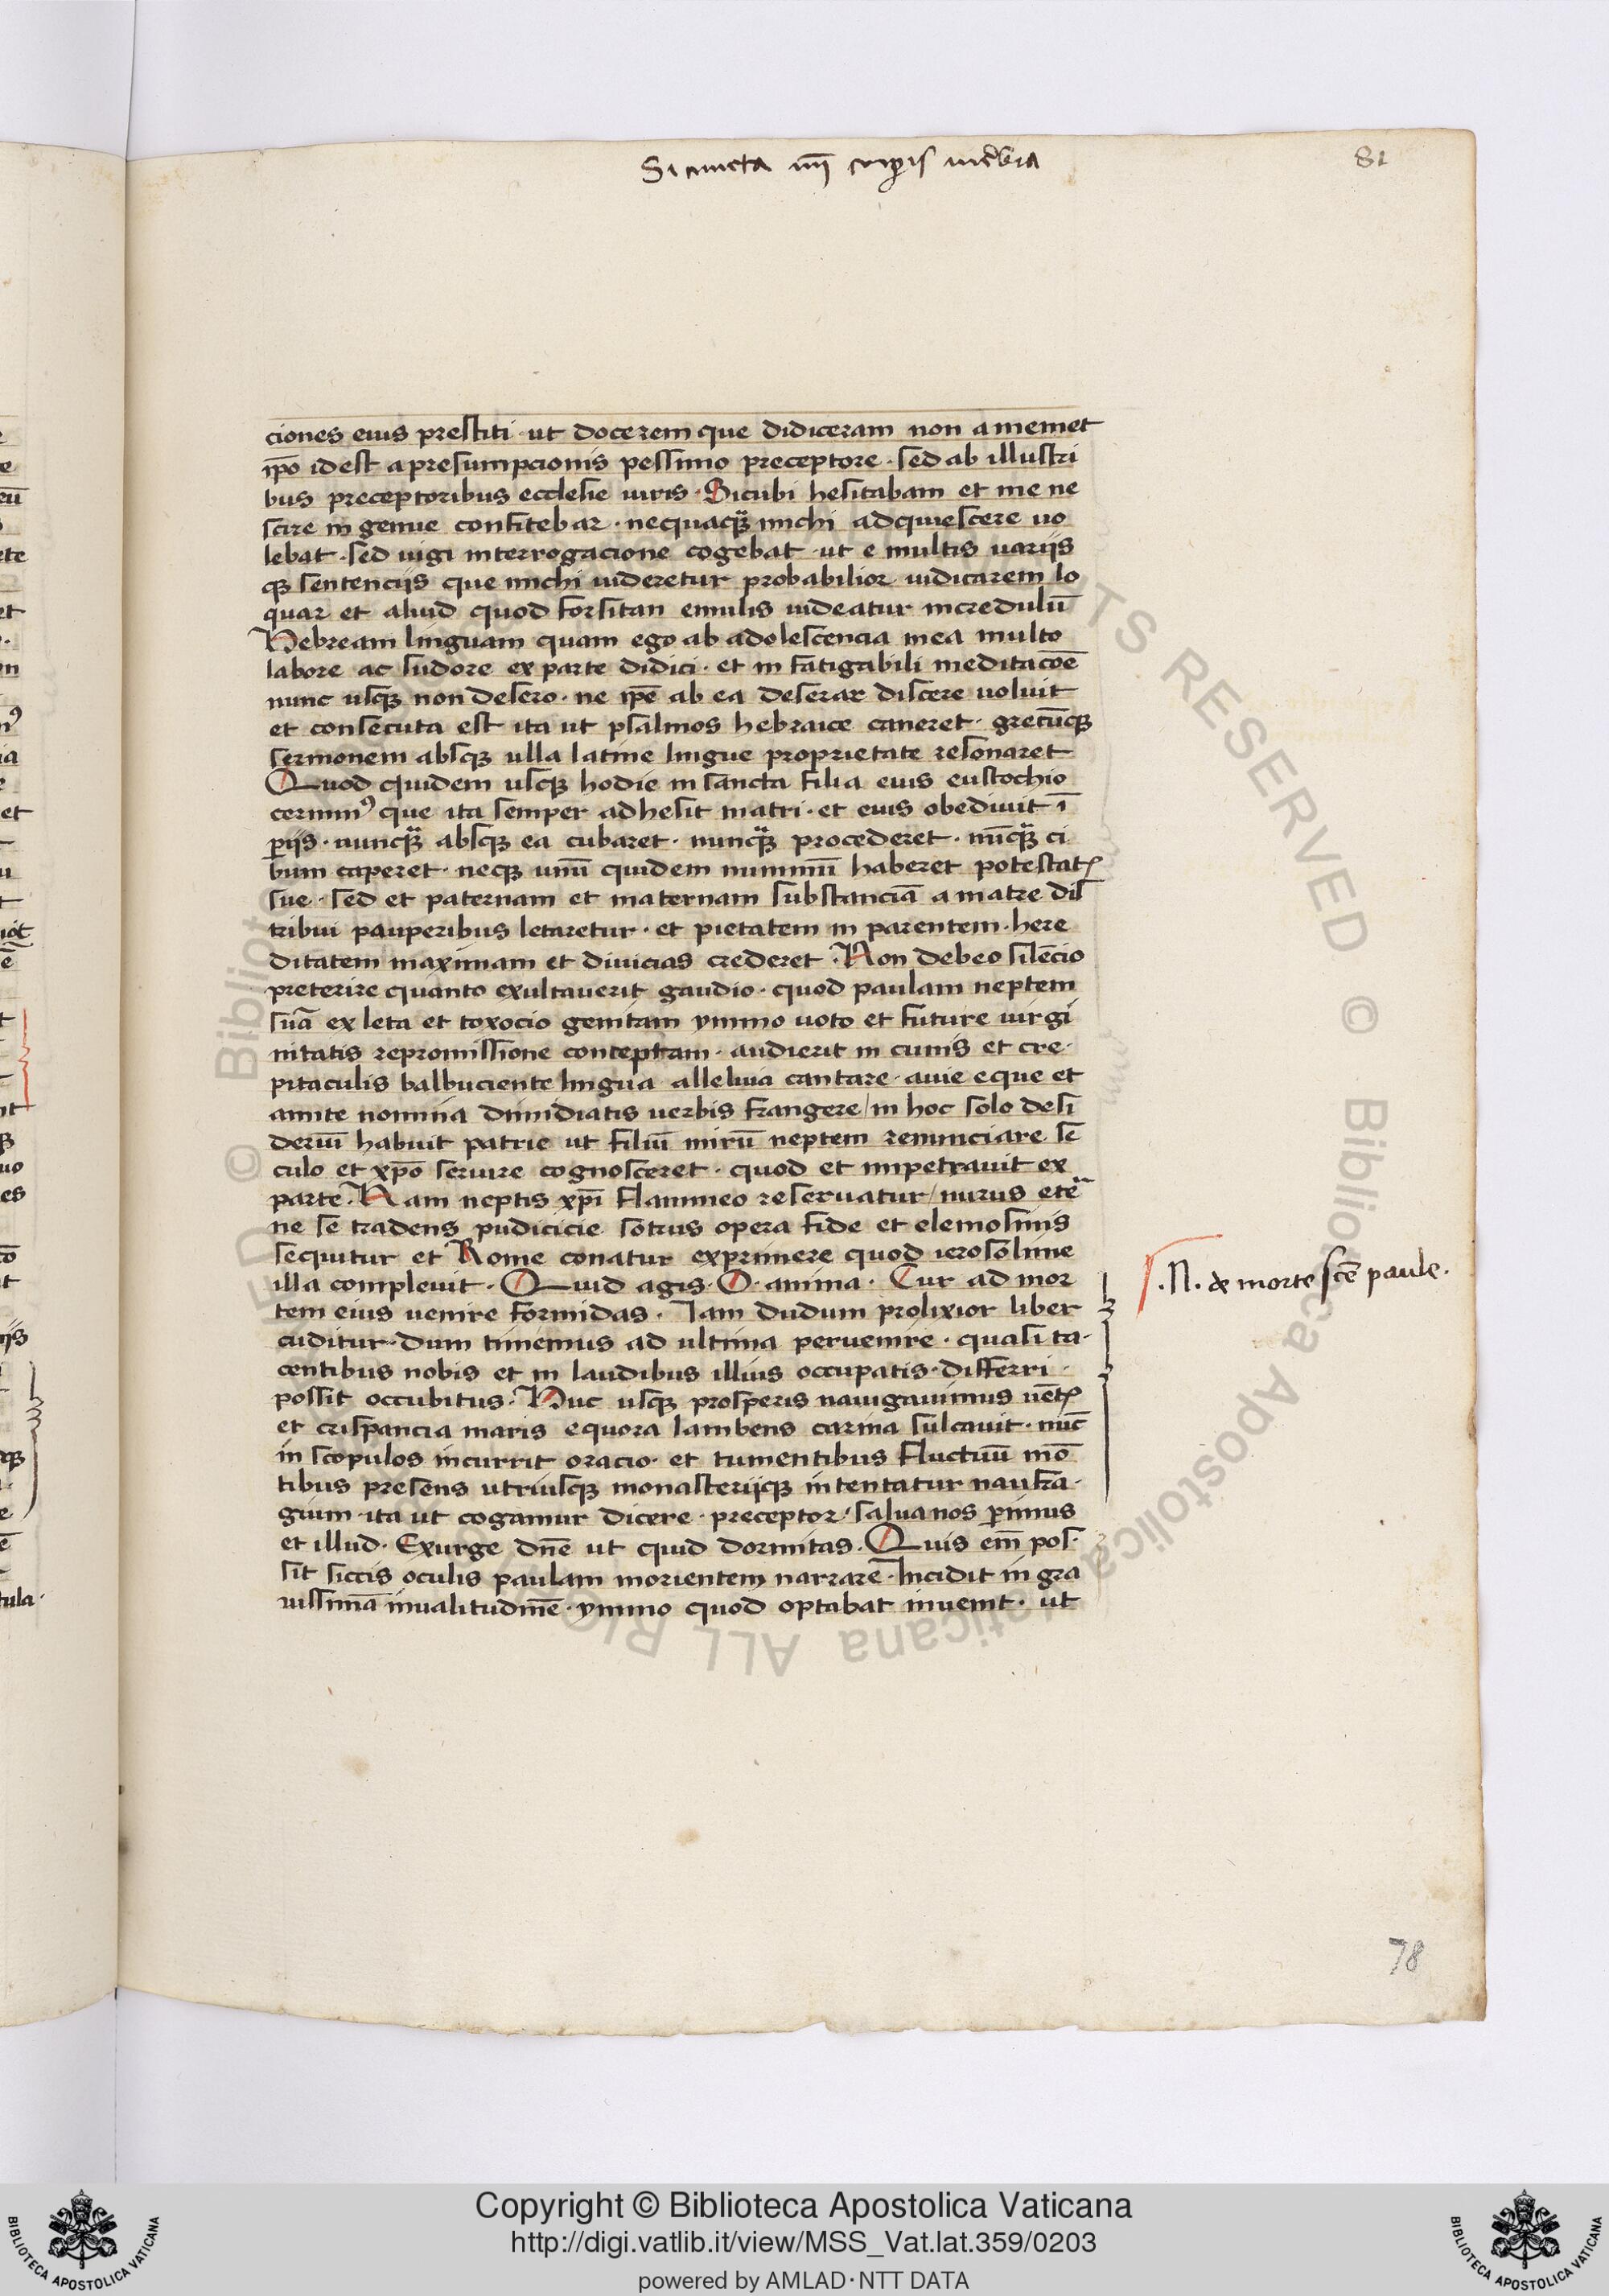 Si cuncta mī corp̄is mēbra
81
ciones eius prestiti · ut docerem que didiceram non a memet
ip̄o id est a presumpcionis pessimo preceptore · sed ab illustri
bus preceptoribus ecclesie uiris · Sicubi hesitabam et me ne
scire in genue confitebar · nequaq̄ michi adquiescere uo
lebat · sed iugi interrogacione cogebat · ut e multis uariis
qꝫ sentenciis que michi uideretur probabilior iudicarem lo
quar et aliud quod forsitan emulis uideatur incredulū
Hebream linguam quam ego ab adolescencia mea multo
labore ac sudore ex parte didici · et in fatigabili meditacōe
nunc usqꝫ non desero · ne ip̄e ab ea deserar discere uoluit
et consecuta est ita ut psalmos hebraice caneret · grecūqꝫ
sermonem absqꝫ ulla latine lingue proprietate resonaret
Quod quidem usqꝫ hodie in sancta filia eius eustochio
cernim⁹ que ita semper adhesit matri · et eius obediuit ī
ꝑiis · nunqꝫ absqꝫ ea cubaret · nunqꝫ procederet · nūqꝫ ci
bum caperet · neqꝫ unū quidem nummū haberet potestatꝭ
sue · sed et paternam et maternam substanciā a matre dis
tribui pauperibus letaretur · et pietatem in parentem · here
ditatem maximam et diuicias crederet · Non debeo silēcio
preterire quanto exultauerit gaudio · quod paulam neptem
suā ex leta et toxocio genitam ymmo uoto et future uirgi
nitatis repromissione conceptam · audierit in cunis et cre·
pitaculis balbuciente lingua alleluia cantare · auie eque et
amite nomina dimidiatis uerbis frangere / in hoc solo desi
deriū habuit patrie ut filiū nurū neptem renunciare se
culo et xp̄o seruire cognosceret · quod et impetrauit ex
parte · Nam neptis xp̄i flammeo reseruatur / nurus etē
ne se tradens pudicicie sotrus opera fide et elemosinis
sequitur et Rome conatur exprimere quod ierosolime
illa compleuit · Quid agis · O · anima · Cur ad mor
tem eius uenire formidas · Iam dudum prolixior liber
cuditur · dum timemus ad ultima peruenire · quasi ta·
centibus nobis et in laudibus illius occupatis · differri ·
possit occubitus · Huc usqꝫ prosperis nauigauimus uētꝭ
et crispancia maris equora lambens carina sulcauit · nūc
in scopulos incurrit oracio · et tumentibus fluctuū mō
tibus presens utriusqꝫ monasteriiqꝫ intentatur naufra·
gium · ita ut cogamur dicere · preceptor / salua nos ꝑimus
et illud · Exurge dn̄e ut quid dormitas · Quis em̄ pos·
sit siccis oculis paulam morientem narrare · Incidit in gra
uissimā inualitudinē · ymmo quod optabat inuenit · ut
.N. de morte scē paule.
78
Copyright © Biblioteca Apostolica Vaticana
http://digi.vatlib.it/view/MSS_Vat.lat.359/0203
powered by AMLAD·NTT DATA
BIBLIOTECA APOSTOLICA VATICANA
BIBLIOTECA APOSTOLICA VATICANA